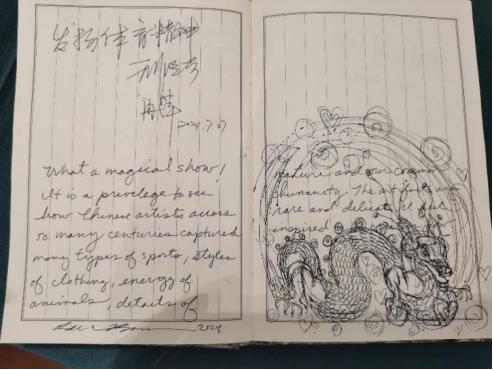 发扬体育精神
2024.7.27
What a magical show!
It is a privilege to see
how Chinese artists across
so many centuries captured
many types of sports, styles
of clothing, energy of
animals, details of
2024
nature and our common
humanity. The art forms are
rare and delicate. I feel
inspired